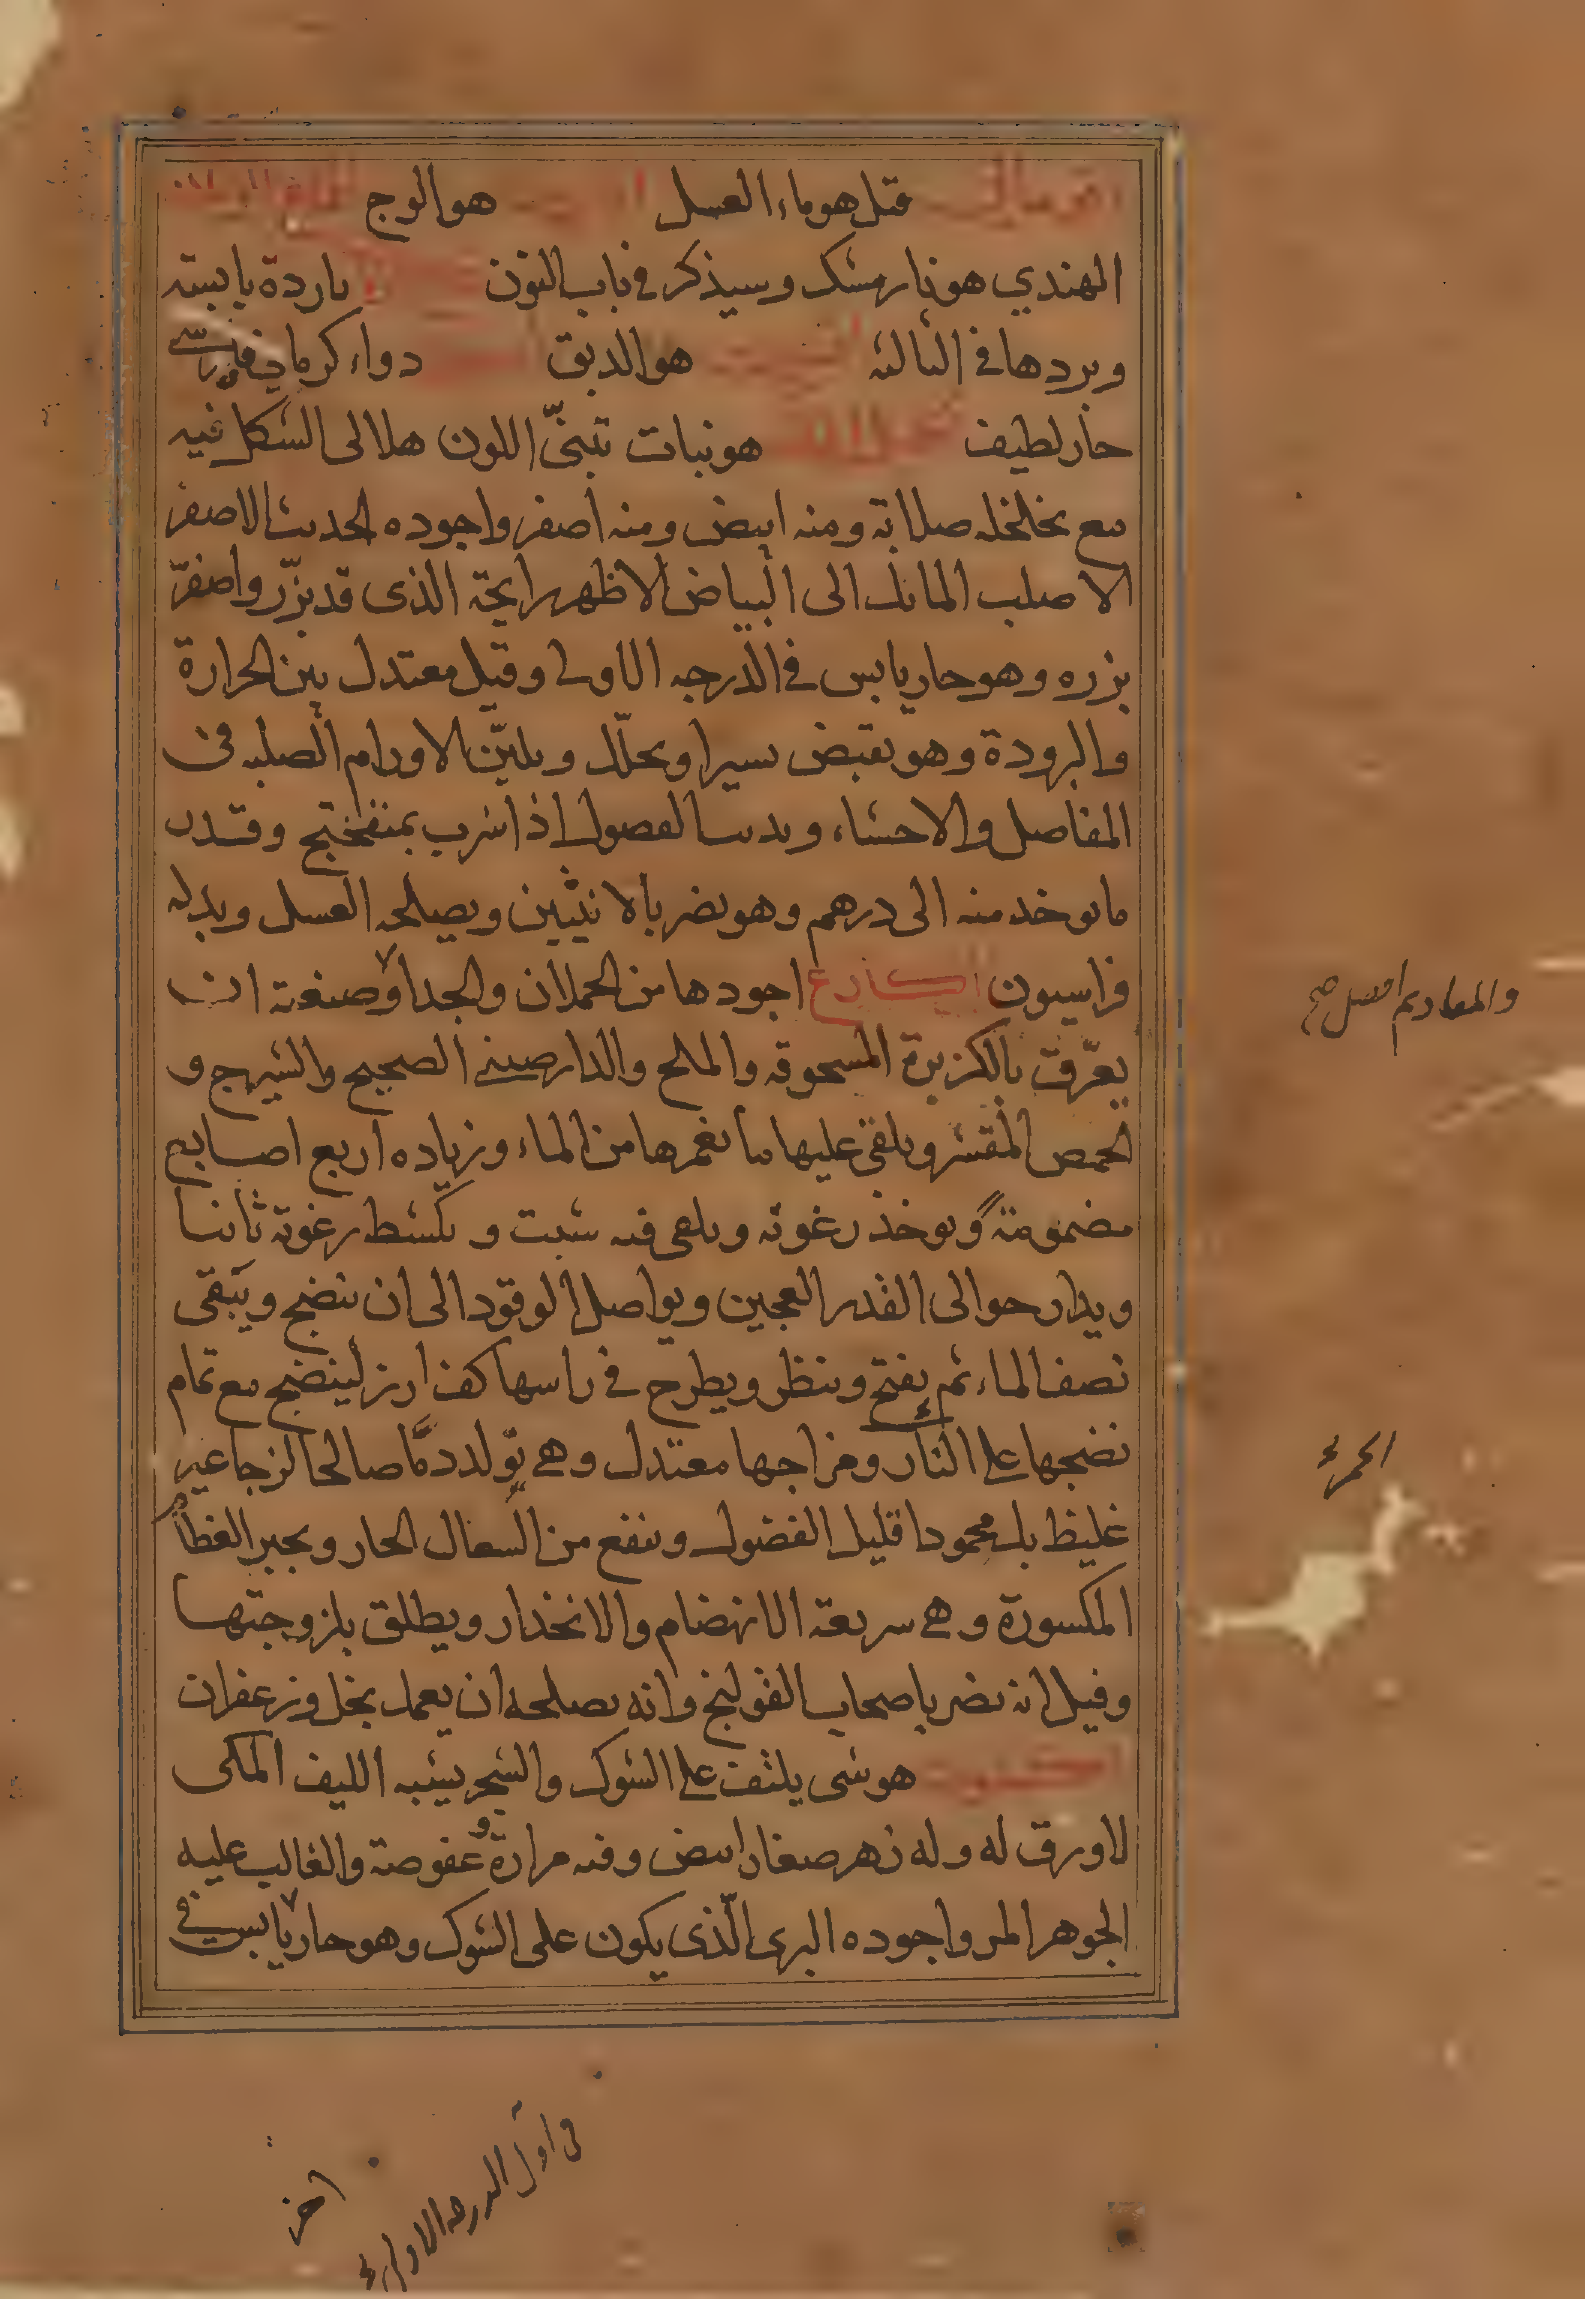 قيل هو ماء العسل هو الوج
الهندي هو نارمشك وسيذكر في باب النون باردة يابسة
وبردها في الثالثة هو الدبق دواء كرماني فارسي
حار لطيف هو نبات تبنّي اللون هلالى الشكل فيه
مع تخلخله صلابة ومنه ابيض ومنه اصفر واجوده الحديث الاصفر
الاصلب المائل الى البياض الاظهر رايحة الذى قد بزّر واصفرّ
بزره وهو حار يابس في الدرجه الاولى وقيل معتدل بين الحرارة
والبرودة وهو يقبض يسيرا ويحلّل ويليّن الاورام الصلبه فى
المفاصل والاحشاء ويذيب الفضول اذا شرب بميفختج وقدر
ما يوخد منه الى درهم وهو يضر بالانثيين ويصلحه العسل وبدله
فراسيون اكارع اجودها من الحملان والجدا وصنعة ان
يعرّق بالكزبرة المسحوقه والملح والدارصيني الصحيح والشيرج و
الحمص المقشر ويلقى عليها ما يغمرها من الماء وزياده اربع اصابع
مضمومة ويوخذ رغوته ويلقى فيه شبت و يكشط رغوته ثانيا
ويدار حوالى القدر العجين ويواصل الوقود الى ان ينضج ويبقى
نصف الماء ثم يفتح وينظر ويطرح في راسها كف ارز لينضج مع تمام
نضجها على النار ومزاجها معتدل وهي تولد دمًا صالحا لزجا غير
غليظ بل محمودا قليل الفضول وينفع من السعال الحار ويجبر العظام
المكسورة وهي سريعة الانهضام والانحدار ويطلق بلزوجتها
وقيل انه يضر باصحاب القولنج وانه يصلحه ان يعمل بخل وزعفران
اكشوث هو شى يلتف على الشوك والشجر يشبه الليف المكى
لا ورق له وله زهر صغار ابيض وفيه مرارة وعفوصة والغالب عليه
الجوهر المر واجوده البرى الّذى يكون على الشوك وهو حار يابس في
والمعاديم افضل صح
الحمرة
فى اول الدرجه الاولى
اخر